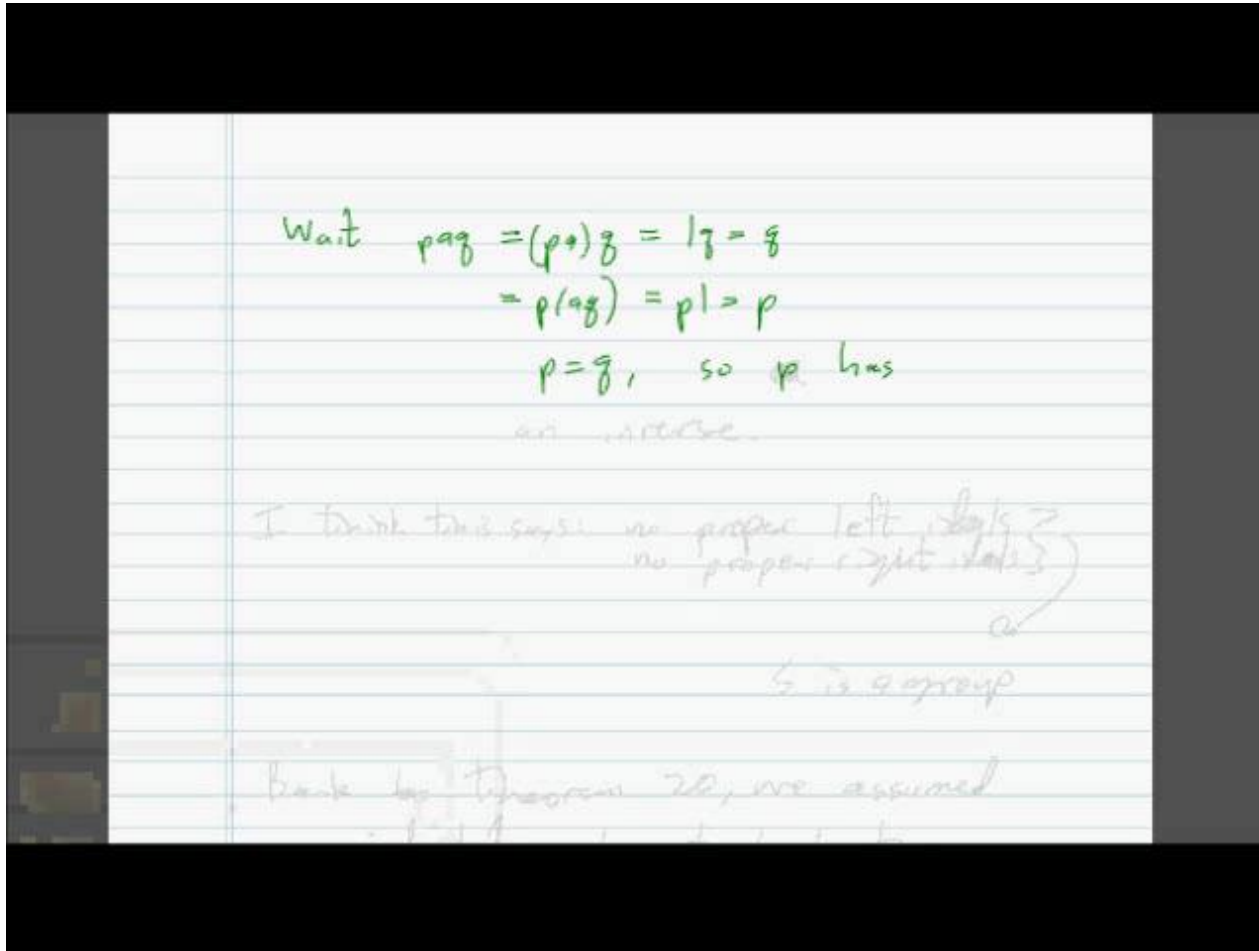 Wait paq = (pa)q = 1q = q
= p(aq) = p1 = p
p = q, so p has
an inverse.
I think this says: no proper left ideals
no proper right ideals }
S is a group
Back to Theorem 20, we assumed